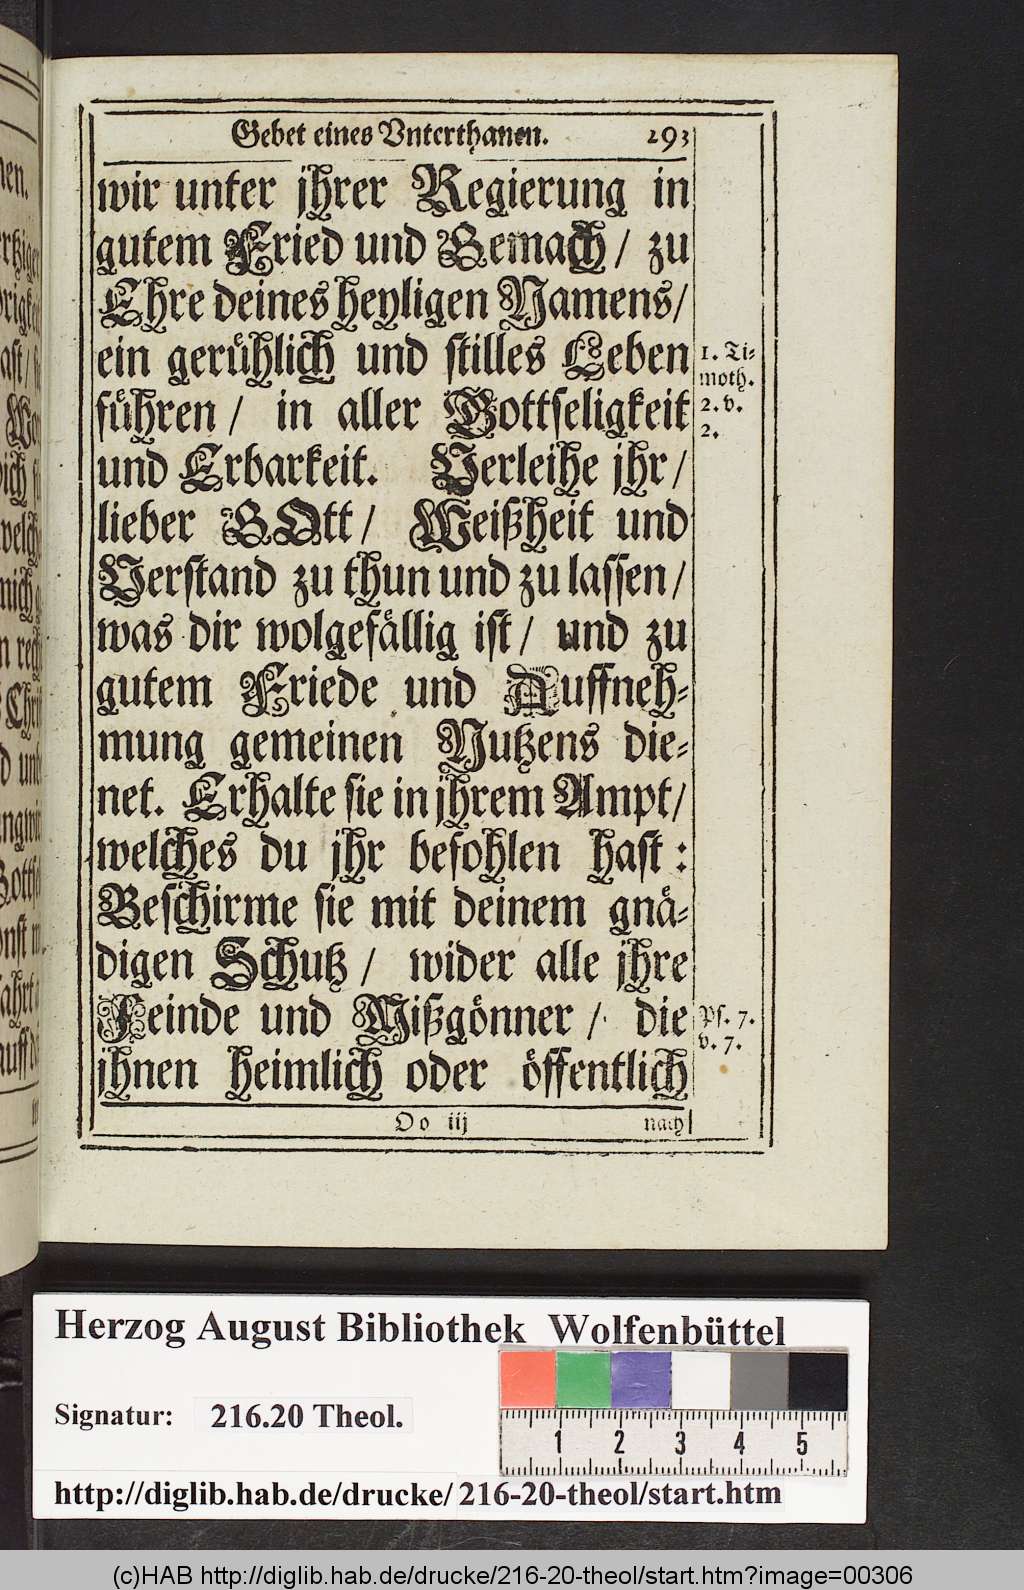 Gebet eines Vnterthanen. 293
wir unter jhrer Regierung in
gutem Fried und Gemach / zu
Ehre deines heyligen Namens /
ein gerühlich und stilles Leben
führen / in aller Gottseligkeit
und Erbarkeit. Verleihe jhr /
lieber GOtt / Weißheit und
Verstand zu thun und zu lassen /
was dir wolgefällig ist / und zu
gutem Friede und Auffneh-
mung gemeinen Nutzens die-
net. Erhalte sie in jhrem Ampt /
welches du jhr befohlen hast :
Beschirme sie mit deinem gnä-
digen Schutz / wider alle jhre
Feinde und Mißgönner / die
jhnen heimlich oder öffentlich
Oo iij nach
1. Ti-
moth.
2. v.
2.
Ps. 7.
v. 7.
Herzog August Bibliothek Wolfenbüttel
Signatur: 216.20 Theol.
1 2 3 4 5
http://diglib.hab.de/drucke/216-20-theol/start.htm
(c)HAB http://diglib.hab.de/drucke/216-20-theol/start.htm?image=00306